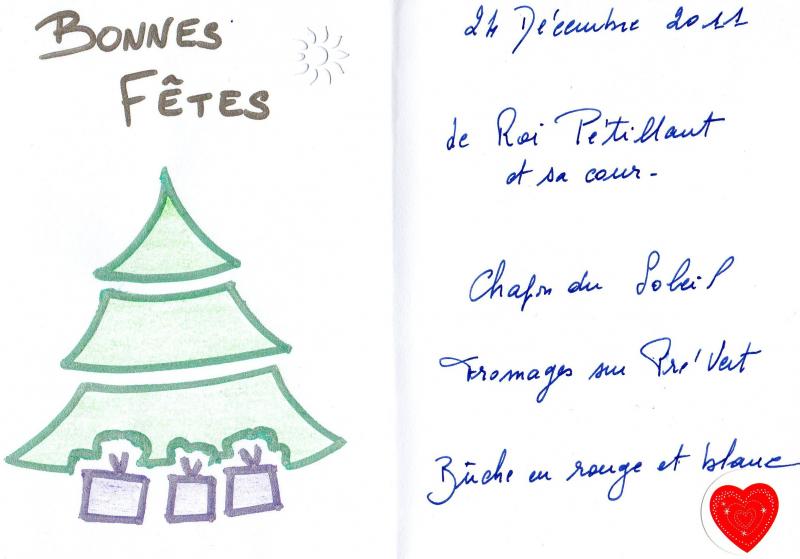 BONNES
FÊTES
24 Décembre 2011
de Roi Pétillant
et sa cour.
Chapon du Soleil
Fromages sur Pré Vert
Bûche en rouge et blanc